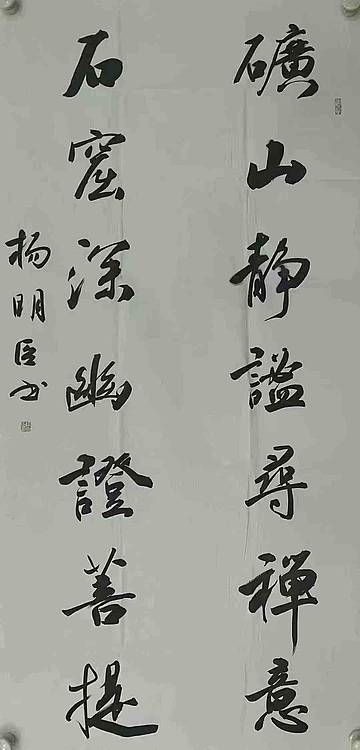 礦山靜謐尋禪意
石窟深幽證善提
杨明臣书